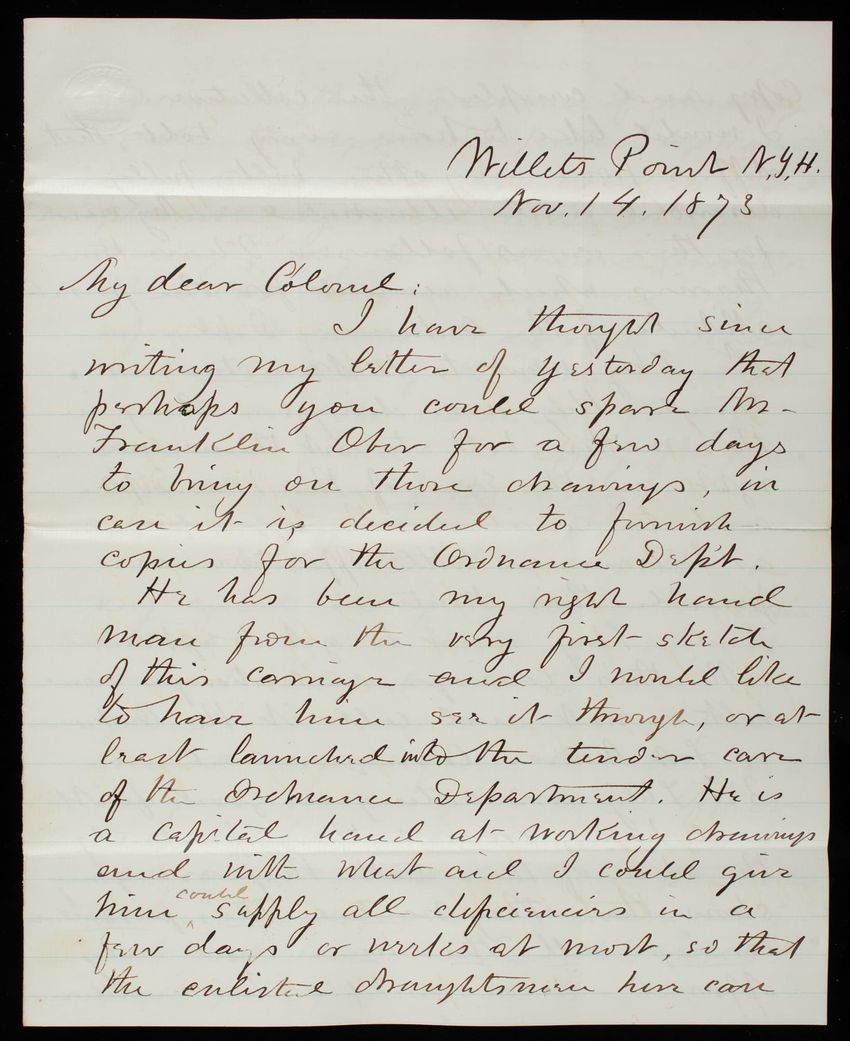 Willets Point N.Y.H.
Nov. 14. 1873
My dear Colonel:
I have thought since
writing my letter of yesterday that
perhaps you could spare Mr
Franklin Ober for a few days
to bring on those drawings, in
case it is decided to furnish
copies for the Ordnance Dep't.
He has been my right hand
man from the very first sketch
of this carriage and I would like
to have him see it through, or at
least launched into the tender care
of the Ordnance Department. He is
a capital hand at working drawings
and with what aid I could give
him could supply all deficiencies in a
few days or weeks at most, so that
the enlisted draughtsman here can